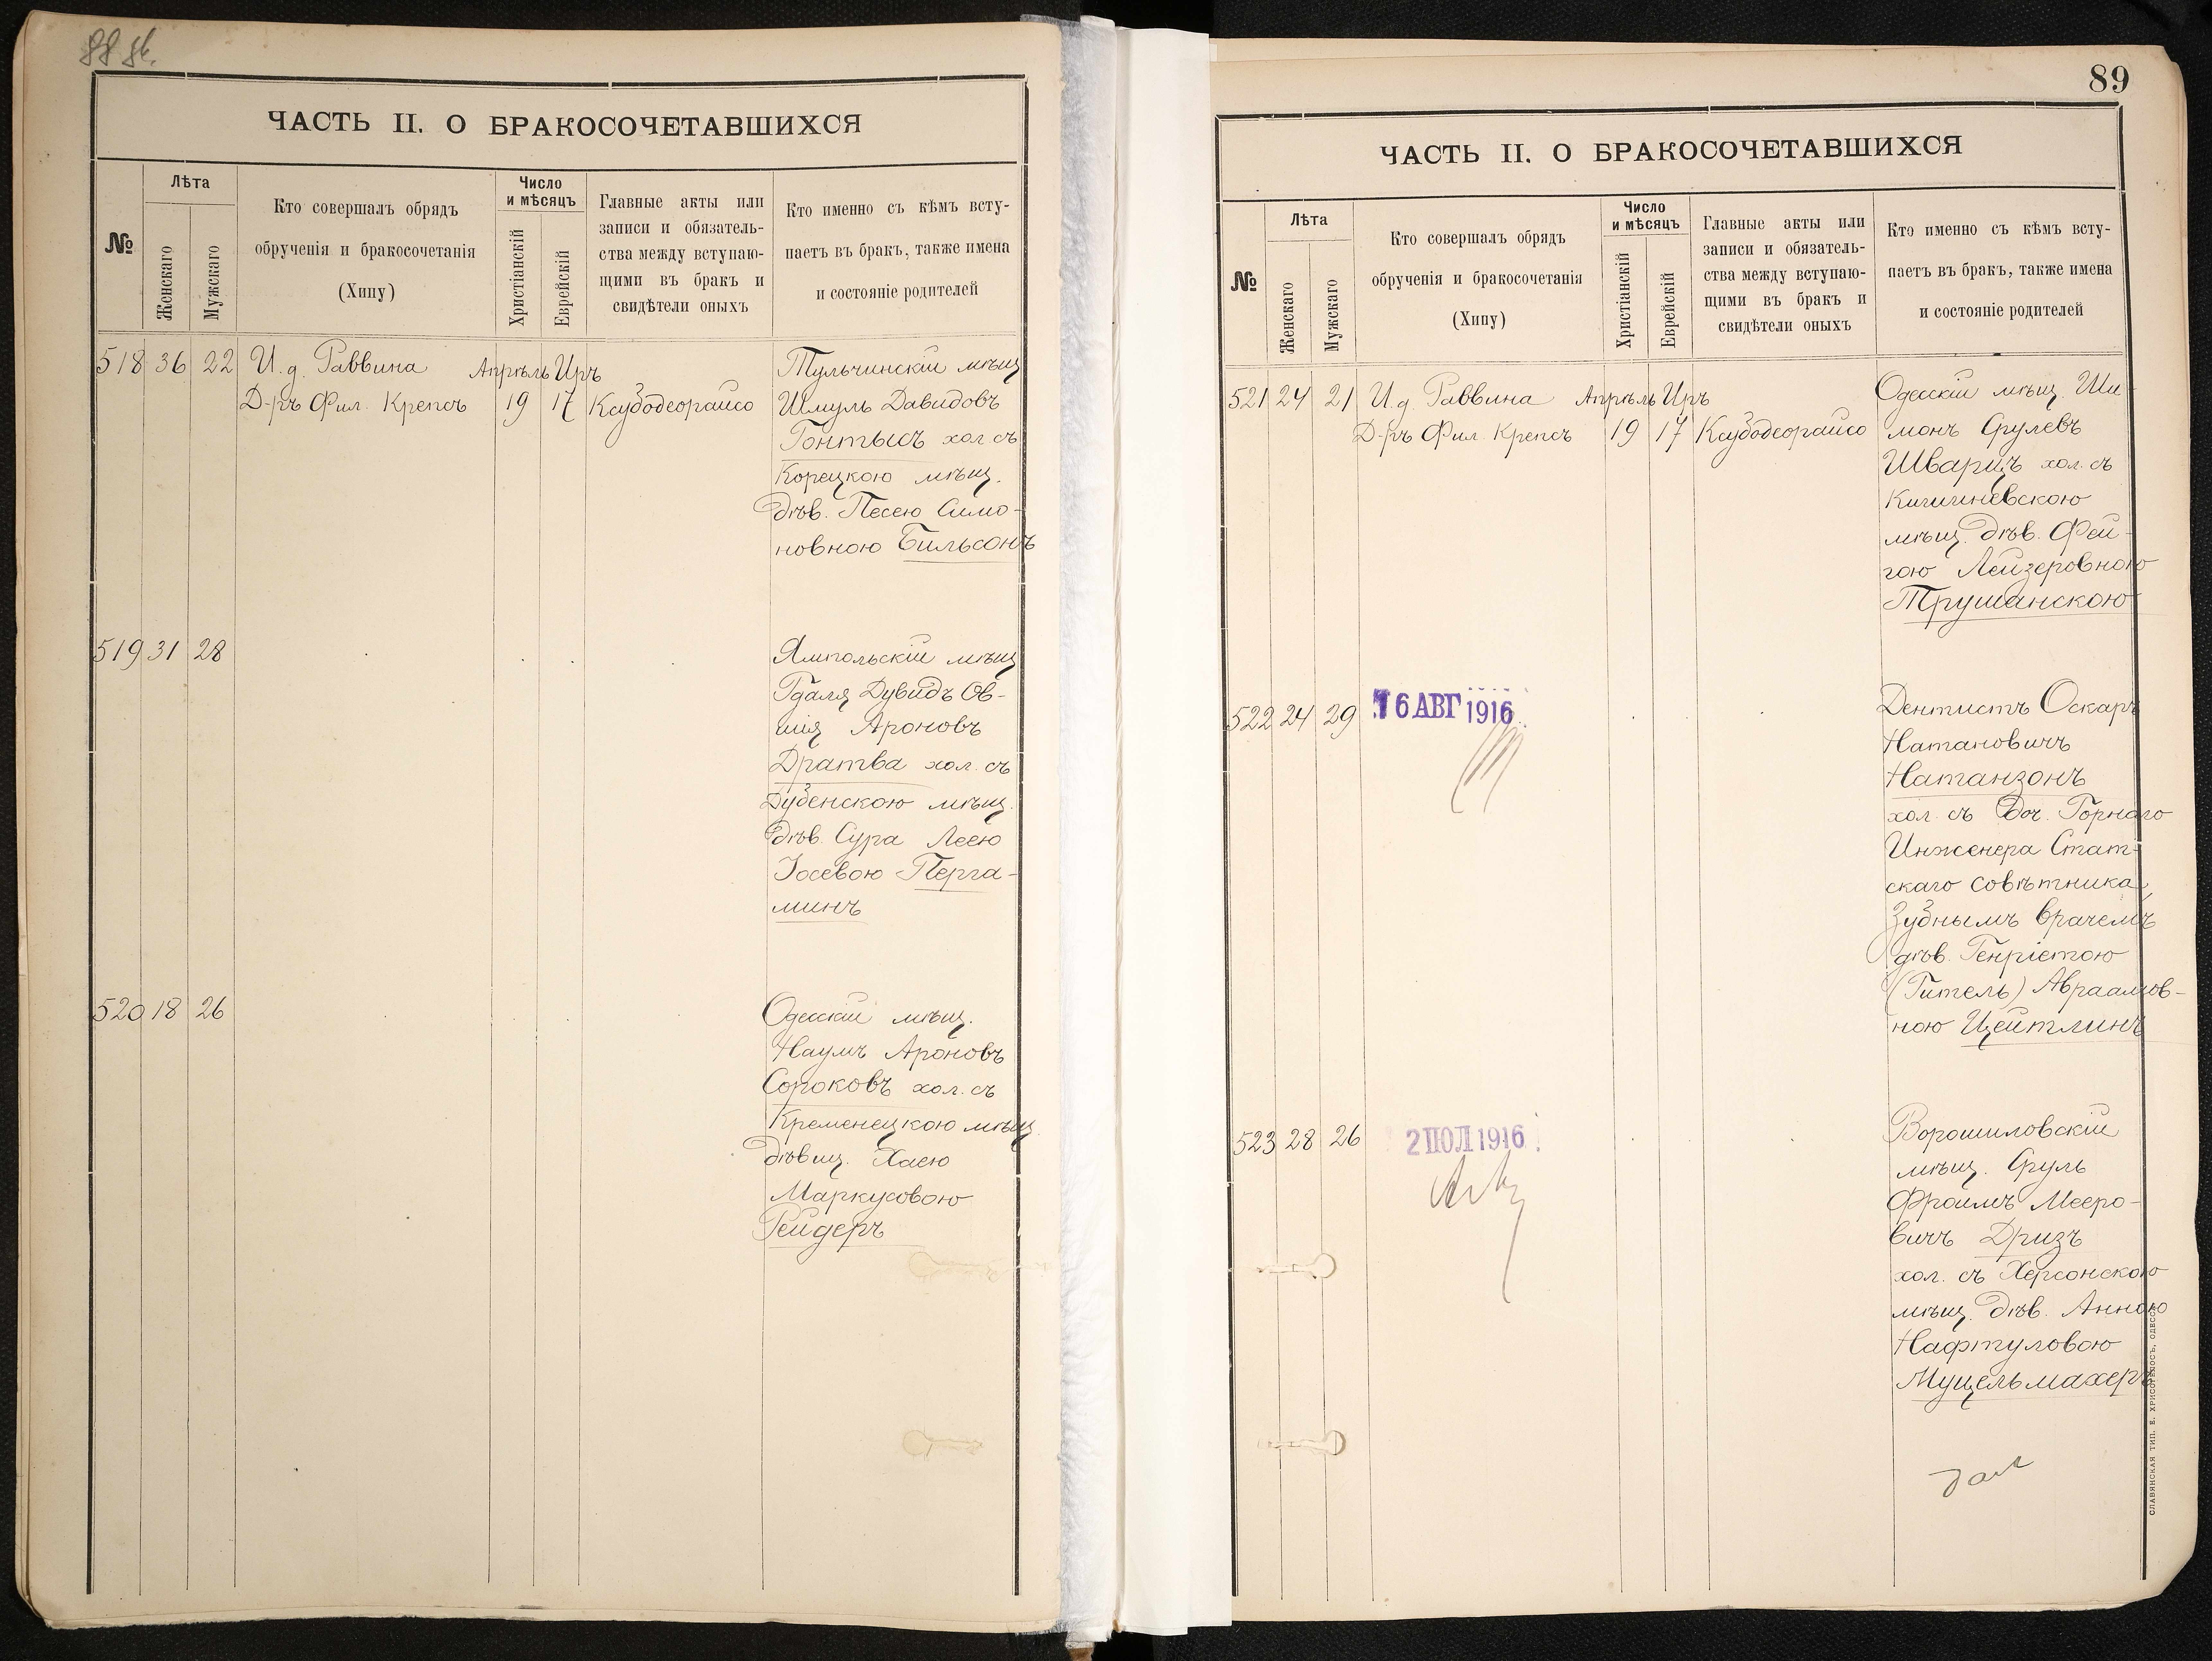 88 об.
ЧАСТЬ II. О БРАКОСОЧЕТАВШИХСЯ
№
Лѣта
Женскаго
Мужскаго
Кто совершалъ обрядъ
обрученія и бракосочетанія
(Хипу)
Число
и мѣсяцъ
Христіанскій
Еврейскій
Главные акты или
записи и обязатель-
ства между вступаю-
щими въ бракъ и
свидѣтели оныхъ
Кто именно съ кѣмъ всту-
паетъ въ бракъ, также имена
и состояніе родителей
518 36 22 И. д. Раввина Апрѣль Иръ Тульчинскій мѣщ
Д-ръ Фил. Крепсъ 19 17 Ксубодеорайсо Шмуль Давидовъ
Гонтысъ хол. съ
Корецкою мѣщ.
дѣв. Песею Симо-
новною Бильсонъ
519 31 28 Ямпольскій мѣщ
Гдаля Дувидъ Ов-
шія Ароновъ
Дратва хол. съ
Дубенскою мѣщ.
дѣв. Сура Леею
Іосевою Перга-
минъ
520 18 26 Одесскій мѣщ.
Наумъ Ароновъ
Сороковъ хол. съ
Кременецкою мѣщ
дѣвиц. Хаею
Маркусовою
Рейдеръ
89
ЧАСТЬ II. О БРАКОСОЧЕТАВШИХСЯ
№
Лѣта
Женскаго
Мужскаго
Кто совершалъ обрядъ
обрученія и бракосочетанія
(Хипу)
Число
и мѣсяцъ
Христіанскій
Еврейскій
Главные акты или
записи и обязатель-
ства между вступаю-
щими въ бракъ и
свидѣтели оныхъ
Кто именно съ кѣмъ всту-
паетъ въ бракъ, также имена
и состояніе родителей
521 24 21 И. д. Раввина Апрѣль Иръ Одесскій мѣщ. Ши-
Д-ръ Фил. Крепсъ 19 17 Ксубодеорайсо монъ Срулевъ
Шварцъ хол. съ
Кишиневскою
мѣщ. дѣв. Фей-
гою Лейзеровною
Трушанскою
522 24 29 16 АВГ 1916 Дентистъ Оскаръ
Натановичъ
Натанзонъ
хол. съ Доч. Горнаго
Инженера Стат-
скаго Совѣтника,
Зубнымъ врачемъ
дѣв. Генріетою
(Гитель) Авраамов-
ною Цейтлинъ
523 28 26 2 ІЮЛ 1916 Ворошиловскій
мѣщ. Сруль
Фроимъ Мееро-
вичъ Дризъ
хол. съ Херсонскою
мѣщ. дѣв. Анною
Нафтуловою
Муцельмахеръ
СЛАВЯНСКАЯ ТИП. Е. ХРИСОГЕЛОСЪ, ОДЕССА